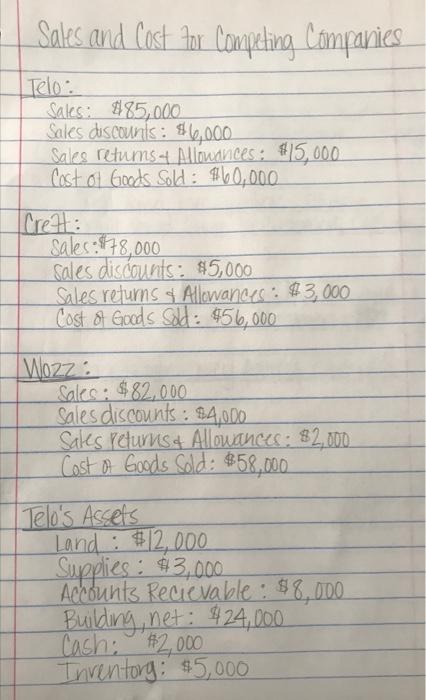 Sales and Cost for Competing Companies
Telo:
Sales: $85,000
Sales discounts: $6,000
Sales returns + Allowances: $15,000
Cost of Goods Sold: $60,000
Crett:
Sales: $78,000
Sales discounts: $5,000
Sales returns & Allowances: $3,000
Cost of Goods Sold: $56,000
Wozz:
Sales: $82,000
Sales discounts: $4,000
Sales returns & Allowances: $2,000
Cost of Goods Sold: $58,000
Telo's Assets
Land: $12,000
Supplies: $3,000
Accounts Recievable: $8,000
Building, net: $24,000
Cash: $2,000
Inventory: $5,000